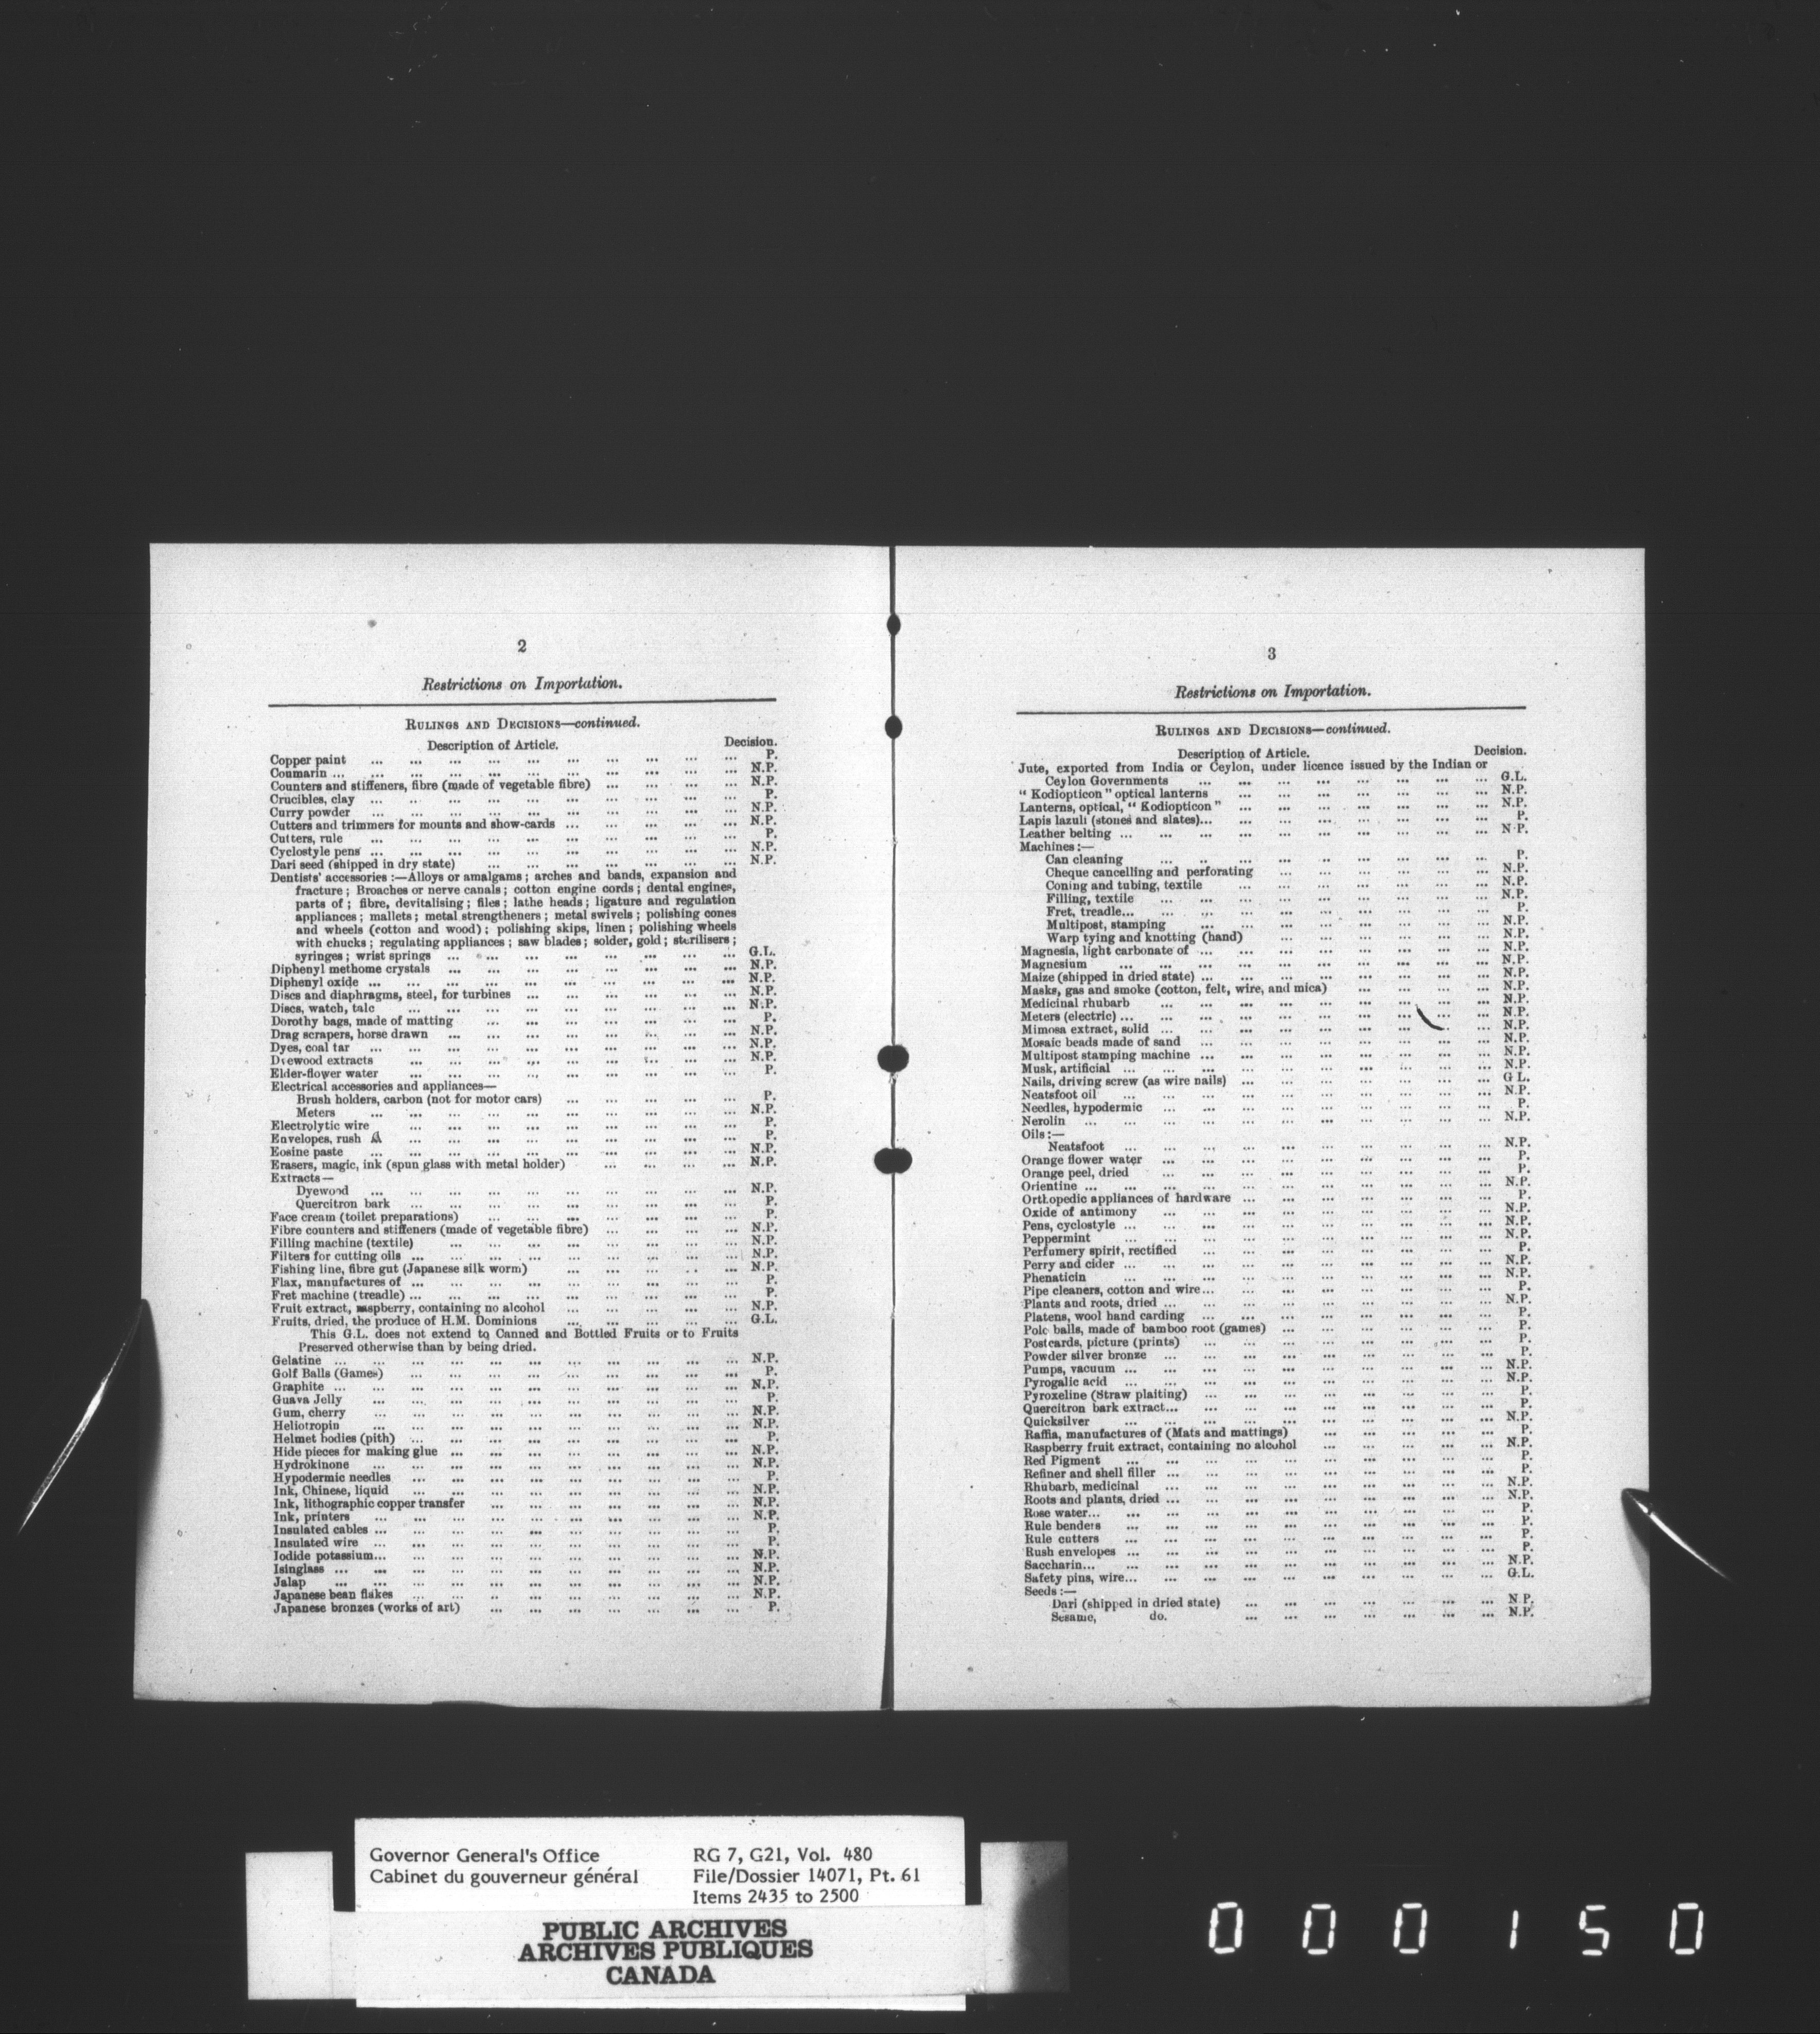 2
Restrictions on Importation.
RULINGS AND DECISIONS—continued.
Description of Article. Decision.
Copper paint ... P.
Coumarin ... N.P.
Counters and stiffeners, fibre (made of vegetable fibre) ... N.P.
Crucibles, clay ... P.
Curry powder ... N.P.
Cutters and trimmers for mounts and show-cards ... N.P.
Cutters, rule ... P.
Cyclostyle pens ... N.P.
Dari seed (shipped in dry state) ... N.P.
Dentists' accessories :—Alloys or amalgams ; arches and bands, expansion and
fracture ; Broaches or nerve canals ; cotton engine cords ; dental engines,
parts of ; fibre, devitalising ; files ; lathe heads ; ligature and regulation
appliances ; mallets ; metal strengtheners ; metal swivels ; polishing cones
and wheels (cotton and wood) ; polishing skips, linen ; polishing wheels
with chucks ; regulating appliances ; saw blades ; solder, gold ; sterilisers ;
syringes ; wrist springs ... G.L.
Diphenyl methome crystals ... N.P.
Diphenyl oxide ... N.P.
Discs and diaphragms, steel, for turbines ... N.P.
Discs, watch, talc ... N.P.
Dorothy bags, made of matting ... P.
Drag scrapers, horse drawn ... N.P.
Dyes, coal tar ... N.P.
Dyewood extracts ... N.P.
Elder-flower water ... P.
Electrical accessories and appliances—
Brush holders, carbon (not for motor cars) ... P.
Meters ... N.P.
Electrolytic wire ... P.
Envelopes, rush ... P.
Eosine paste ... N.P.
Erasers, magic, ink (spun glass with metal holder) ... N.P.
Extracts—
Dyewood ... N.P.
Quercitron bark ... P.
Face cream (toilet preparations) ... P.
Fibre counters and stiffeners (made of vegetable fibre) ... N.P.
Filling machine (textile) ... N.P.
Filters for cutting oils ... N.P.
Fishing line, fibre gut (Japanese silk worm) ... N.P.
Flax, manufactures of ... P.
Fret machine (treadle) ... P.
Fruit extract, raspberry, containing no alcohol ... N.P.
Fruits, dried, the produce of H.M. Dominions ... G.L.
This G.L. does not extend to Canned and Bottled Fruits or to Fruits
Preserved otherwise than by being dried.
Gelatine ... N.P.
Golf Balls (Games) ... P.
Graphite ... N.P.
Guava Jelly ... P.
Gum, cherry ... N.P.
Heliotropin ... N.P.
Helmet bodies (pith) ... P.
Hide pieces for making glue ... N.P.
Hydrokinone ... N.P.
Hypodermic needles ... P.
Ink, Chinese, liquid ... N.P.
Ink, lithographic copper transfer ... N.P.
Ink, printers ... N.P.
Insulated cables ... P.
Insulated wire ... P.
Iodide potassium... N.P.
Isinglass ... N.P.
Jalap ... N.P.
Japanese bean flakes ... N.P.
Japanese bronzes (works of art) ... P.
3
Restrictions on Importation.
RULINGS AND DECISIONS—continued.
Description of Article. Decision.
Jute, exported from India or Ceylon, under licence issued by the Indian or
Ceylon Governments ... G.L.
" Kodiopticon " optical lanterns ... N.P.
Lanterns, optical, " Kodiopticon " ... N.P.
Lapis lazuli (stones and slates)... P.
Leather belting ... N.P.
Machines :—
Can cleaning ... P.
Cheque cancelling and perforating ... N.P.
Coning and tubing, textile ... N.P.
Filling, textile ... N.P.
Fret, treadle... P.
Multipost, stamping ... N.P.
Warp tying and knotting (hand) ... N.P.
Magnesia, light carbonate of ... N.P.
Magnesium ... N.P.
Maize (shipped in dried state) ... N.P.
Masks, gas and smoke (cotton, felt, wire, and mica) ... N.P.
Medicinal rhubarb ... N.P.
Meters (electric) ... N.P.
Mimosa extract, solid ... N.P.
Mosaic beads made of sand ... N.P.
Multipost stamping machine ... N.P.
Musk, artificial ... N.P.
Nails, driving screw (as wire nails) ... G L.
Neatsfoot oil ... N.P.
Needles, hypodermic ... P.
Nerolin ... N.P.
Oils :—
Neatsfoot ... N.P.
Orange flower water ... P.
Orange peel, dried ... P.
Orientine ... N.P.
Orthopedic appliances of hardware ... P.
Oxide of antimony ... N.P.
Pens, cyclostyle ... N.P.
Peppermint ... N.P.
Perfumery spirit, rectified ... P.
Perry and cider ... N.P.
Phenaticin ... N.P.
Pipe cleaners, cotton and wire... P.
Plants and roots, dried ... N.P.
Platens, wool hand carding ... P.
Polo balls, made of bamboo root (games) ... P.
Postcards, picture (prints) ... P.
Powder silver bronze ... P.
Pumps, vacuum ... N.P.
Pyrogalic acid ... N.P.
Pyroxeline (Straw plaiting) ... P.
Quercitron bark extract... P.
Quicksilver ... N.P.
Raffia, manufactures of (Mats and mattings) ... P.
Raspberry fruit extract, containing no alcohol ... N.P.
Red Pigment ... P.
Refiner and shell filler ... P.
Rhubarb, medicinal ... N.P.
Roots and plants, dried ... N.P.
Rose water... P.
Rule benders ... P.
Rule cutters ... P.
Rush envelopes ... P.
Saccharin... N.P.
Safety pins, wire... G.L.
Seeds :—
Dari (shipped in dried state) ... N P.
Sesame, do. ... N.P.
Governor General's Office RG 7, G21, Vol. 480
Cabinet du gouverneur général File/Dossier 14071, Pt. 61
Items 2435 to 2500
PUBLIC ARCHIVES
ARCHIVES PUBLIQUES
CANADA
000150